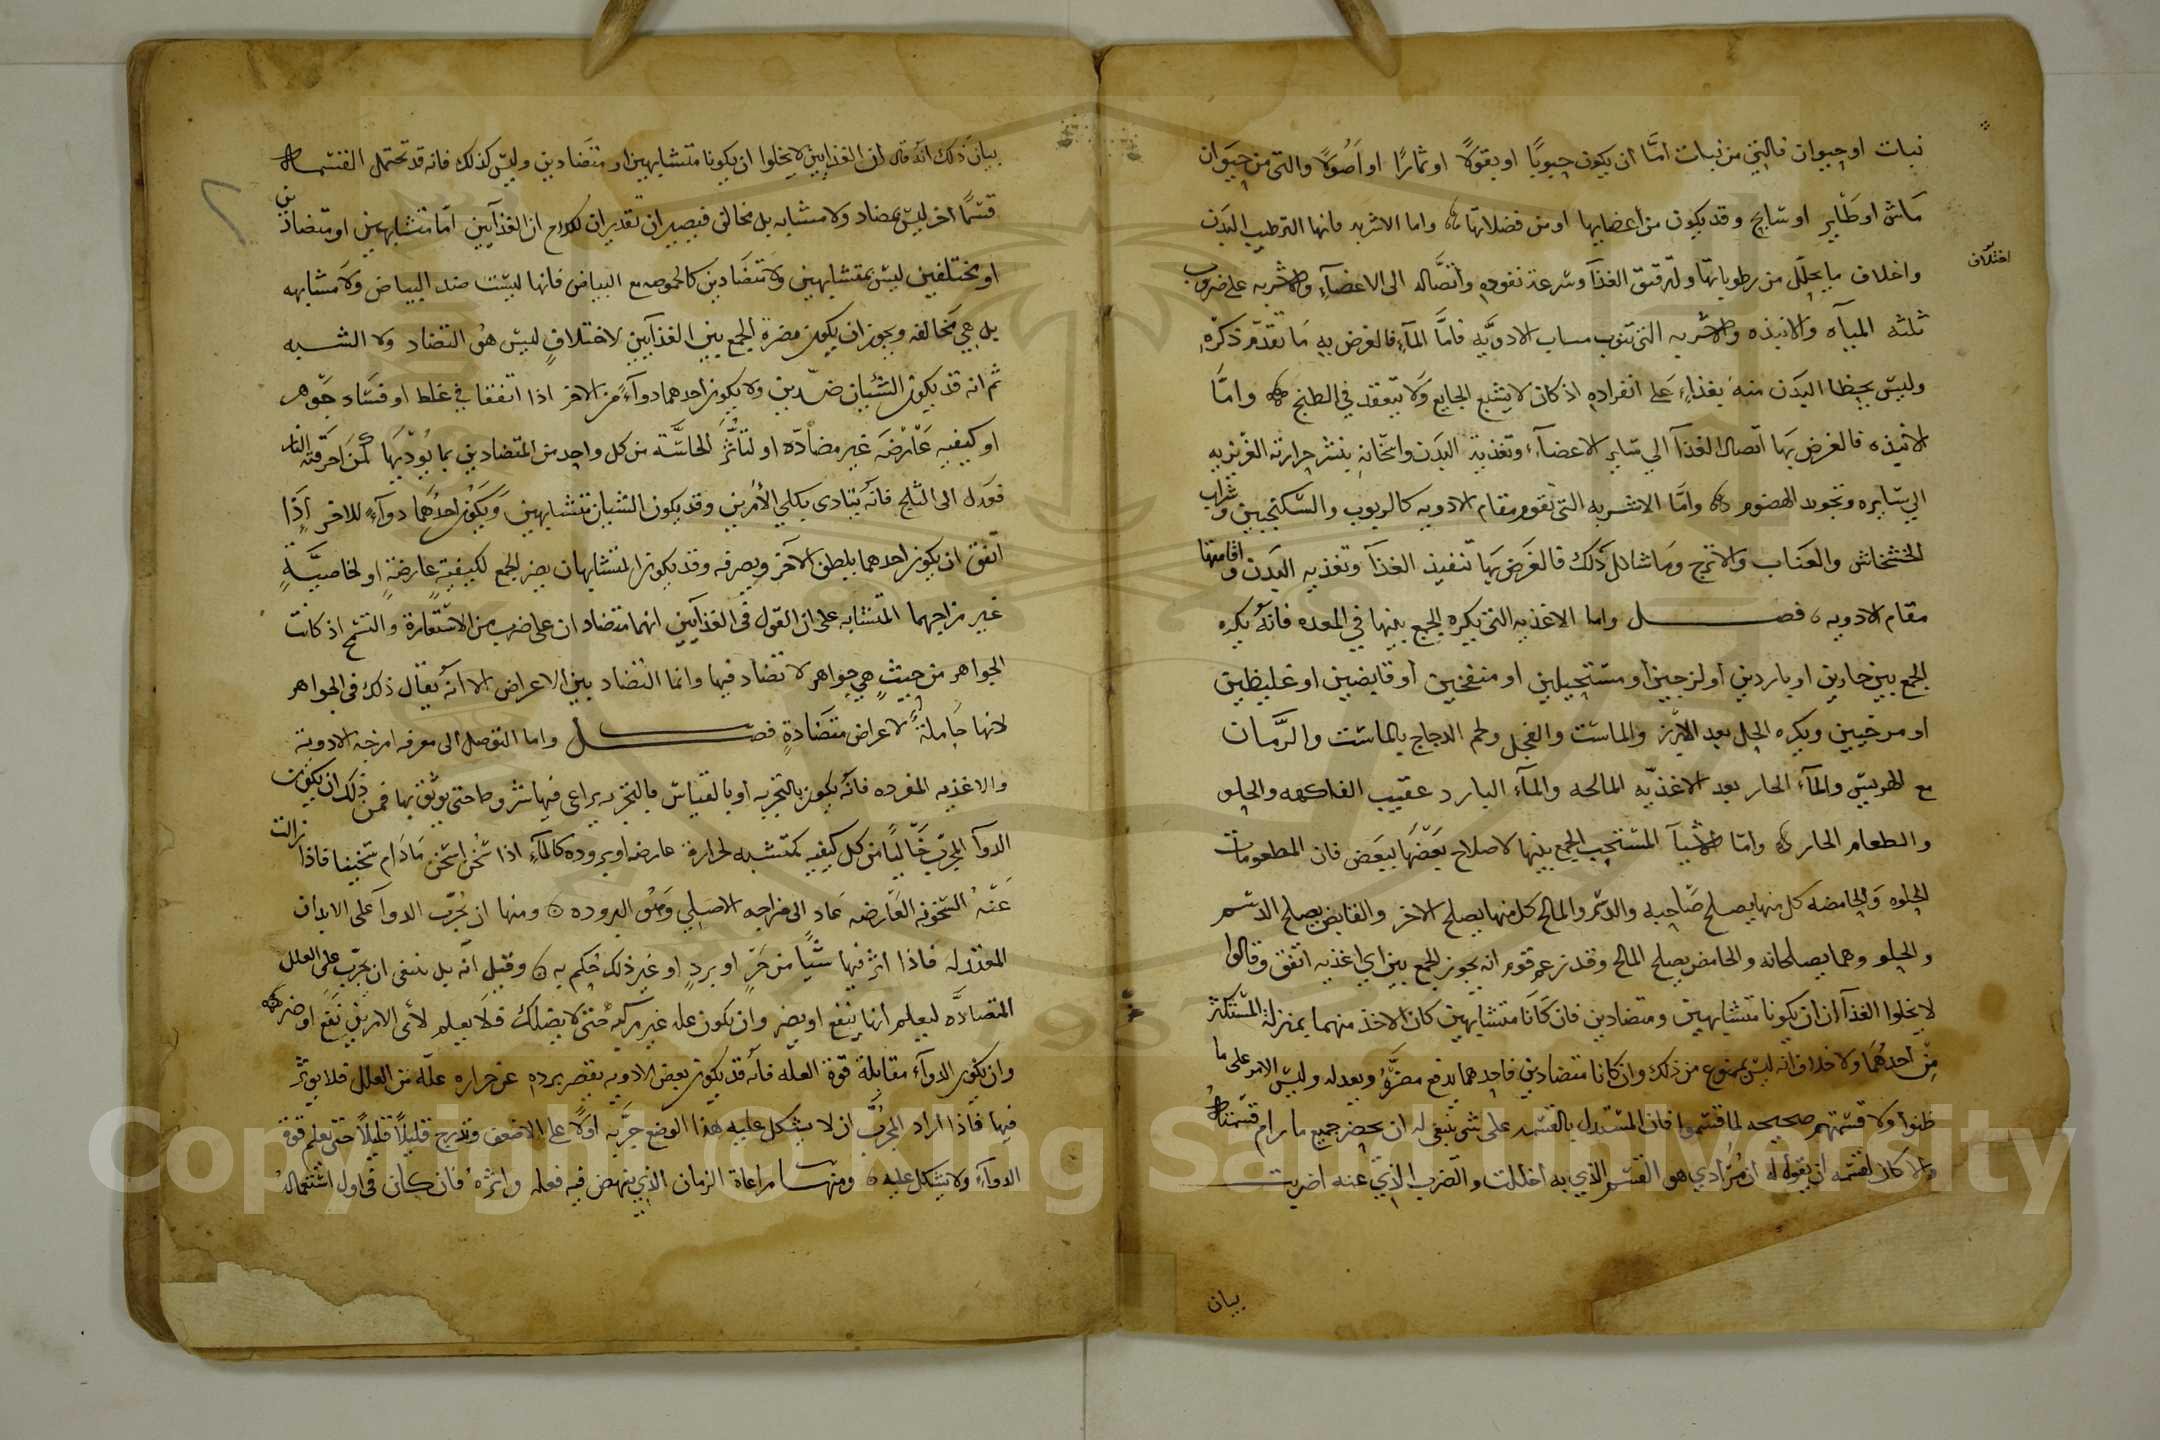 نبات او حيوان فالتي من نبات امّا ان يكون حبوبًا او بقولًا او ثمارًا او اصُولًا والتي من حيَوان
مَاشٍ او طَايرٍ او سَابحٍ وقد يكون من اعضايها او من فضلاتها واما الاشربه فانها لترطيب البدَن
واخلاف ما يحلّل من رطوباتها ولترقيق الغذآ وسرعة نفوذه واتصَّاله الى الاعضآءِ والاشربه على ضروب
اختلاف
ثلثه المياه والانبذه والاشربه التي تنوب مناب الادويَّه فامَّا المآءِ فالغرض به مَا تقدّم ذكرُه
وليسَ يحظا البدَن منهُ بغذاءٍ عَلى انفراده اذ كان لا يشبع الجايع وَلا ينعقد في الطبخ وامّا
الانبذه فالغرض بهَا اتصال الغذآ الى سَاير الاعضآء وتغذية البدَن واسخانه بنشر حرارته الغريزيه
الى سَايره وتجويد الهضوم وامَّا الاشربه التي تقوم مقام الادويه كالربوب والسّكنجبين وشراب
الخشخاش والعنَاب والاترج ومَا شاكل ذَلك فالغَرض بهَا تنفيذ الغذآ وتغذيه البدَن واقامتها
مقام الادويه فصل واما الاغذيه التي يكره الجمع بينها في المعده فانه يكره
الجمع بين حارين او باردين او لزجين او مستحيلين او منفخين او قابضين او غليظين
او مرخيين ويكره الخل بعد الارز والماست والفجل ولحم الدجاج بالماست والرّمان
مع الهريسَ والمآء الحار بعد الاغذيّه المالحه والمآء البارد عقيب الفاكهه والحلو
والطعام الحار وامّا الاشيآ المستحب الجمع بينها لاصلاح بعَضهَا لبعَض فان المطعومات
الحلوه وَالحامضه كل منها يصلح صَاحبه والدسَم والمالح كل منها يصلح الاخر والقابض يصلح الدسَم
والحلو وهما يصلحانه والحامض يصلح المالح وقد زعم قوم انه يجوز الجمع بين اي اغذيه اتفق وقالوا
لا يخلوا الغذآان ان يكونا متشابهين ومتضادين فان كَانَا متشابهين كان الاخذ منهما بمنزلة المستكثر
مِن احدهُمَا ولا خلاف انه ليسَ بممنوع من ذلك وان كانا متضادين فاحدهما يدفع مضرّهُ ويعدله وليسَ الامر على ما
ظنوا ولا قسمتهم صحيحه لما قسَموا فان المسَتدل بالقسَمه على شي ينبغي له ان يحضر جميع ما رام قسَمتهُ
والا كان لخصمه ان يقول له ان مُرَادي هو القسَم الذي به اخللت والضرب الذي عنه اضربت
بيان
بيان ذلك انه قال ان الغذايين لا يخلوا ان يكونا متشابهين او متضادين وليسَ كذلك فانه قد تحتمل القسَمه
قسَمًا اخر ليسَ بمضاد ولا مشابه بل مخالف فيصير ان تقدير الكلام ان الغذآيين امّا متشابهين او متضادين
او مختلفين ليسَ بمتشابهين ولا متضَادين كالحموضه مع البياض فانها ليسَت ضد البياض ولا مشابهه
بل هي مخالفه ويجوز ان يكون مضرة الجمع بين الغذآيين لاختلافٍ ليسَ هوُ التضاد ولا الشبه
ثم انه قد يكون الشيان ضدين ولا يكون احدهما دوآءً من الاخر اذا اتفقا في غلط او فسَاد جَوهر
او كيفيه عَارضَه غير مضادّه او لتأثّر الحاسَّة من كل واحد من المتضادين بما يُؤذيهَا كمن احرقته النار
فعَدل الى الثلج فانّه يتاذى بكلي الأمرين وقد يكون الشيان متشابهين وَيكَونُ احدُهما دوآءٍ للاخر اذَا
اتفق ان يكون احدهما يلطف الآخر ويصرفه وقد يكون المتشابهان يضر الجمع لكيفيةٍ عارضةٍ او لخاصيَّةٍ
غير مزاجهما المتشابه على ان القول في الغذآيين انهما متضادان على ضرب من الاستعارة والتسمح اذ كانت
الجواهر من حيث هي جواهر لا تضاد فيها وانما التضاد بين الاعراض الا انه يقال ذلك في الجواهر
لانها حَاملة لاعراض متضَادةٍ فصل واما التوصل الى معرفه امزجه الادوية
والاغذيه المفرده فانّه يكون بالتجربه او بالقياسَ فالتجربه يراعى فيها شروط حتى يوثق بها فمن ذلك ان يكون
الدوآ المجرّب خَاليًا من كل كيفيه مكتسبه لحرارةٍ عارضه او بروده كالمآءِ اذا سُخن اسخن مَا دَام سخينا فاذا زالت
عَنهُ السَخونه العَارضه عَاد الى مزاجه الاصلي وَهُو البروده ومنها ان يُجرّب الدوآ على الابدان
المعتدله فاذا اثر فيها شيًا من حَرٍّ او بردٍ او غير ذلك حُكم به وقيل انّه بل ينبغي ان يجرّب على العلل
المتضادَّه ليعلم انها ينفع او يضر وان يكون عله غير مركبه حتى لا يضلك فلا يعلم لأى الامرين نَفعَ او ضر
وان يكون الدوآء مقابلة قوة العلّه فانه قد يكون بعض الادويه يقصر برده عن حراره علّه من العلل فلا يوثر
فيها فاذا اراد المجربُ ان لا يشكل عليه هذا الوضع جرّبه اوّلًا على الاضعف وتدرج قليلًا قليلًا حتى يعلم قوة
الدوآءِ ولا يشكل عليه ومنها مراعاة الزمان الذي ينهض فيه فعله واثرهُ فان كان في اول استعماله
Copyright © King Saud University